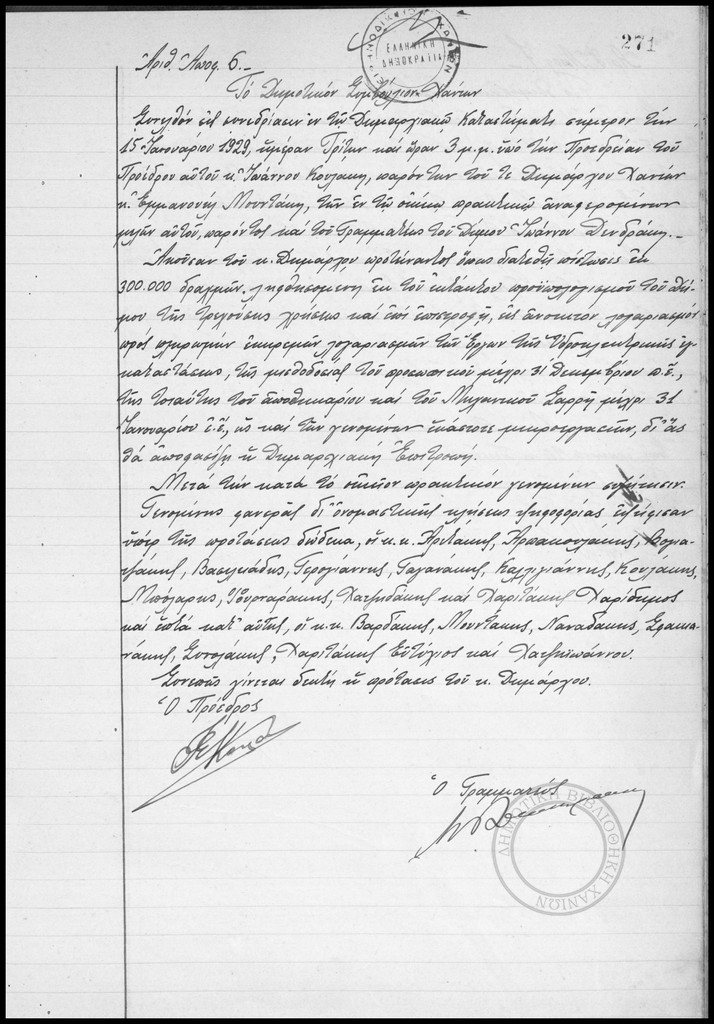 271
ΕΙΡΗΝΟΔΙΚΕΙΟΝ ΧΑΝΙΩΝ
ΕΛΛΗΝΙΚΗ
ΔΗΜΟΚΡΑΤΙΑ
Ἀριθ. Ἀποφ. 6.-
Τὸ Δημοτικὸν Συμβούλιον Χανίων
Συνελθὸν εἰς συνεδρίασιν ἐν τῷ Δημαρχιακῷ Καταστήματι σήμερον τὴν
15 Ἰανουαρίου 1929, ἡμέραν Τρίτην καὶ ὥραν 3 μ.μ. ὑπὸ τὴν Προεδρείαν τοῦ
Προέδρου αὐτοῦ κ. Ἰωάννου Κουλακη, παρόντων τοῦ τε Δημάρχου Χανίων
κ. Ἐμμανουὴλ Μουντάκη, τῶν ἐν τῷ οἰκείῳ πρακτικῷ ἀναφερομένων
μελῶν αὐτοῦ, παρόντος καὶ τοῦ Γραμματέως τοῦ Δήμου Ἰωάννου Δενδράκη.-
Ἀκοῦσαν τοῦ κ. Δημάρχου προτείναντος ὅπως διατεθῇ πίστωσις ἐκ
300.000 δραχμῶν, ληφθησομένη ἐκ τοῦ ἐκτάκτου προϋπολογισμοῦ τοῦ Δή-
μου τῆς τρεχούσης χρήσεως καὶ ἐπὶ ἐπιστροφῇ, εἰς ἀνοικτὸν λογαριασμόν
πρὸς πληρωμὴν ἐκκρεμῶν λογαριασμῶν τῶν Ἔργων τῆς Ὑδροηλεκτρικῆς ἐγ-
καταστάσεως, τῆς μισθοδοσίας τοῦ προσωπικοῦ μέχρι 31 Δεκεμβρίου π.ἔ.,
τῆς τοιαύτης τοῦ ἀποθηκαρίου καὶ τοῦ Μηχανικοῦ Σαρρῆ μέχρι 31
Ἰανουαρίου ἐ.ἔ., ὡς καὶ τῶν γενομένων ἑκάστοτε μικροεργασιῶν, δι' ἃς
θὰ ἀποφασίζῃ ἡ Δημαρχιακὴ Ἐπιτροπή.
Μετὰ τὴν κατὰ τὸ οἰκεῖον πρακτικὸν γενομένην συζήτησιν.
Γενομένης φανερᾶς δι' ὀνομαστικῆς κλήσεως ψηφοφορίας ἐψήφισαν
ὑπὲρ τῆς προτάσεως δώδεκα, οἱ κ.κ. Ἀρετάκης, Ἀρπακουλάκης, Βογια-
τζάκης, Βασιλειάδης, Γερογιάννης, Γαγανακης, Καλλιγιάννης, Κουλακης,
Μπόλαρης, Τζουρταράκης, Χατζηδάκης καὶ Χαριτάκης Χαρίδημος
καὶ ἑπτὰ κατ' αὐτῆς, οἱ κ.κ. Βαρδάκης, Μουντάκης, Ναναδάκης, Σφακια-
νάκης, Χαριτάκης Εὐτύχιος καὶ Χατζηϊωάννου.
Συνεπῶς γίνεται δεκτὴ ἡ πρότασις τοῦ κ. Δημάρχου.
Ὁ Πρόεδρος
Ὁ Γραμματεύς
ΔΗΜΟΤΙΚΗ ΒΙΒΛΙΟΘΗΚΗ ΧΑΝΙΩΝ